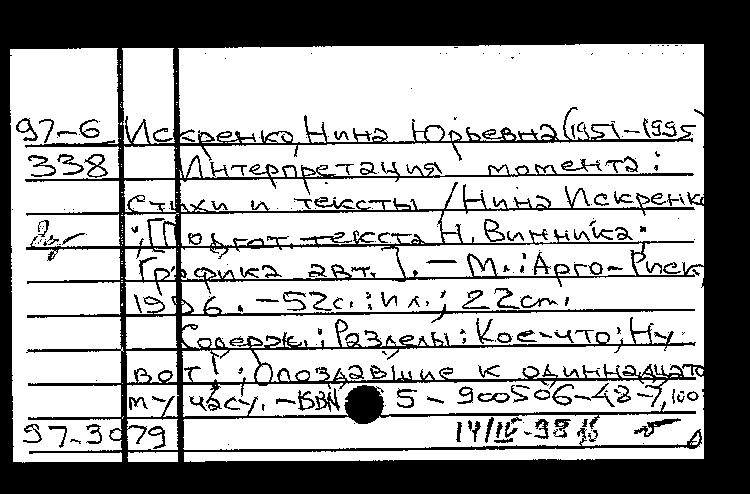 97-6 Искренко, Нина Юрьевна (1951-1995)
338 Интерпретация момента:
стихи и тексты / Нина Искренко
; [Подгот. текста Н. Винника;
Графика авт.]. - М.: Арго-Риск,
1996. - 52 с.: ил.; 22 см.
Содерж.: Разделы: Кое-что; Ну
вот!; Опоздавшие к одиннадцато
му часу. - ISBN 5-900506-48-7, 100
97-3079 14/IV-98